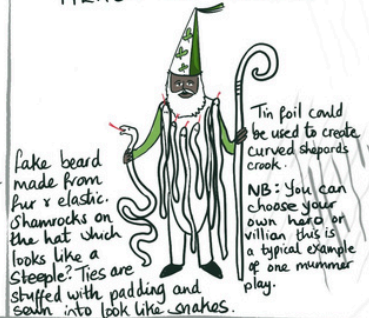 Fake beard
made from
fur & elastic.
Shamrocks on
the hat which
looks like a
steeple? Ties are
stuffed with padding and
sewn into look like snakes.
Tin foil could
be used to create
curved shapards
crook.
NB: You can
choose your
own hero or
villian this is
a typical example
of one mummer
play.